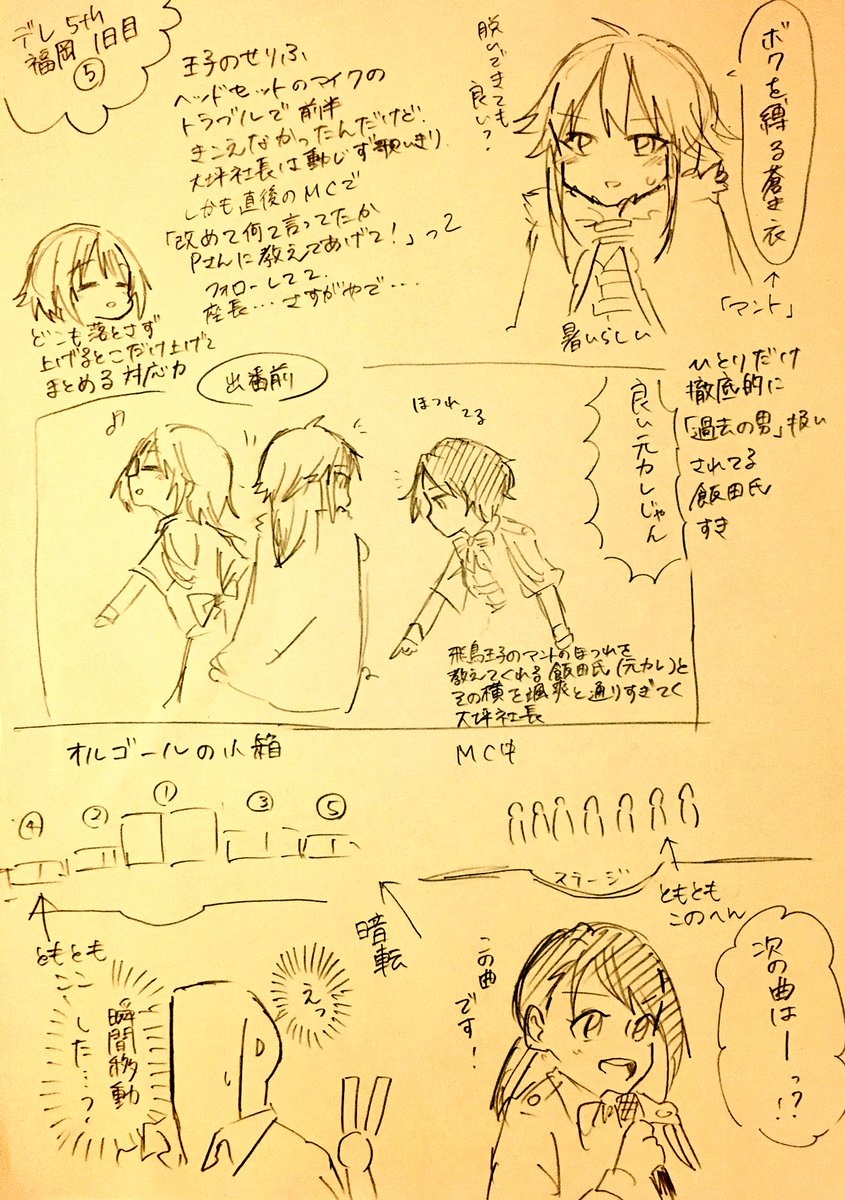 デレ5th
福岡 1日目
⑤
王子のせりふ
ヘッドセットのマイクの
トラブルで前半
きこえなかったんだけど、
大坪社長は動じず歌いきり
しかも直後のMCで
「改めて何て言ってたか
Pさんに教えてあげて!」って
フォローしてて、
座長…さすがやで…
どこも落とさず
上げるとこだけ上げて
まとめる対応力
ボクを縛る蒼き衣
↑
「マント」
脱いできても
良い?
暑いらしい
出番前
♪
ほつれ
てる
良い元カレじゃん
ひとりだけ
徹底的に
「過去の男」扱い
されてる
飯田氏
すき
飛鳥王子のマントのほつれを
教えてくれる飯田氏(元カレ)と
その横を颯爽と通りすぎてく
大坪社長
オルゴールの小箱
④ ② ① ③ ⑤
ともとも
ここ
暗転
MC中
ステージ
ともとも
このへん
次の曲はーっ?!
この曲
です!
えっ
瞬間移動
した…?
P